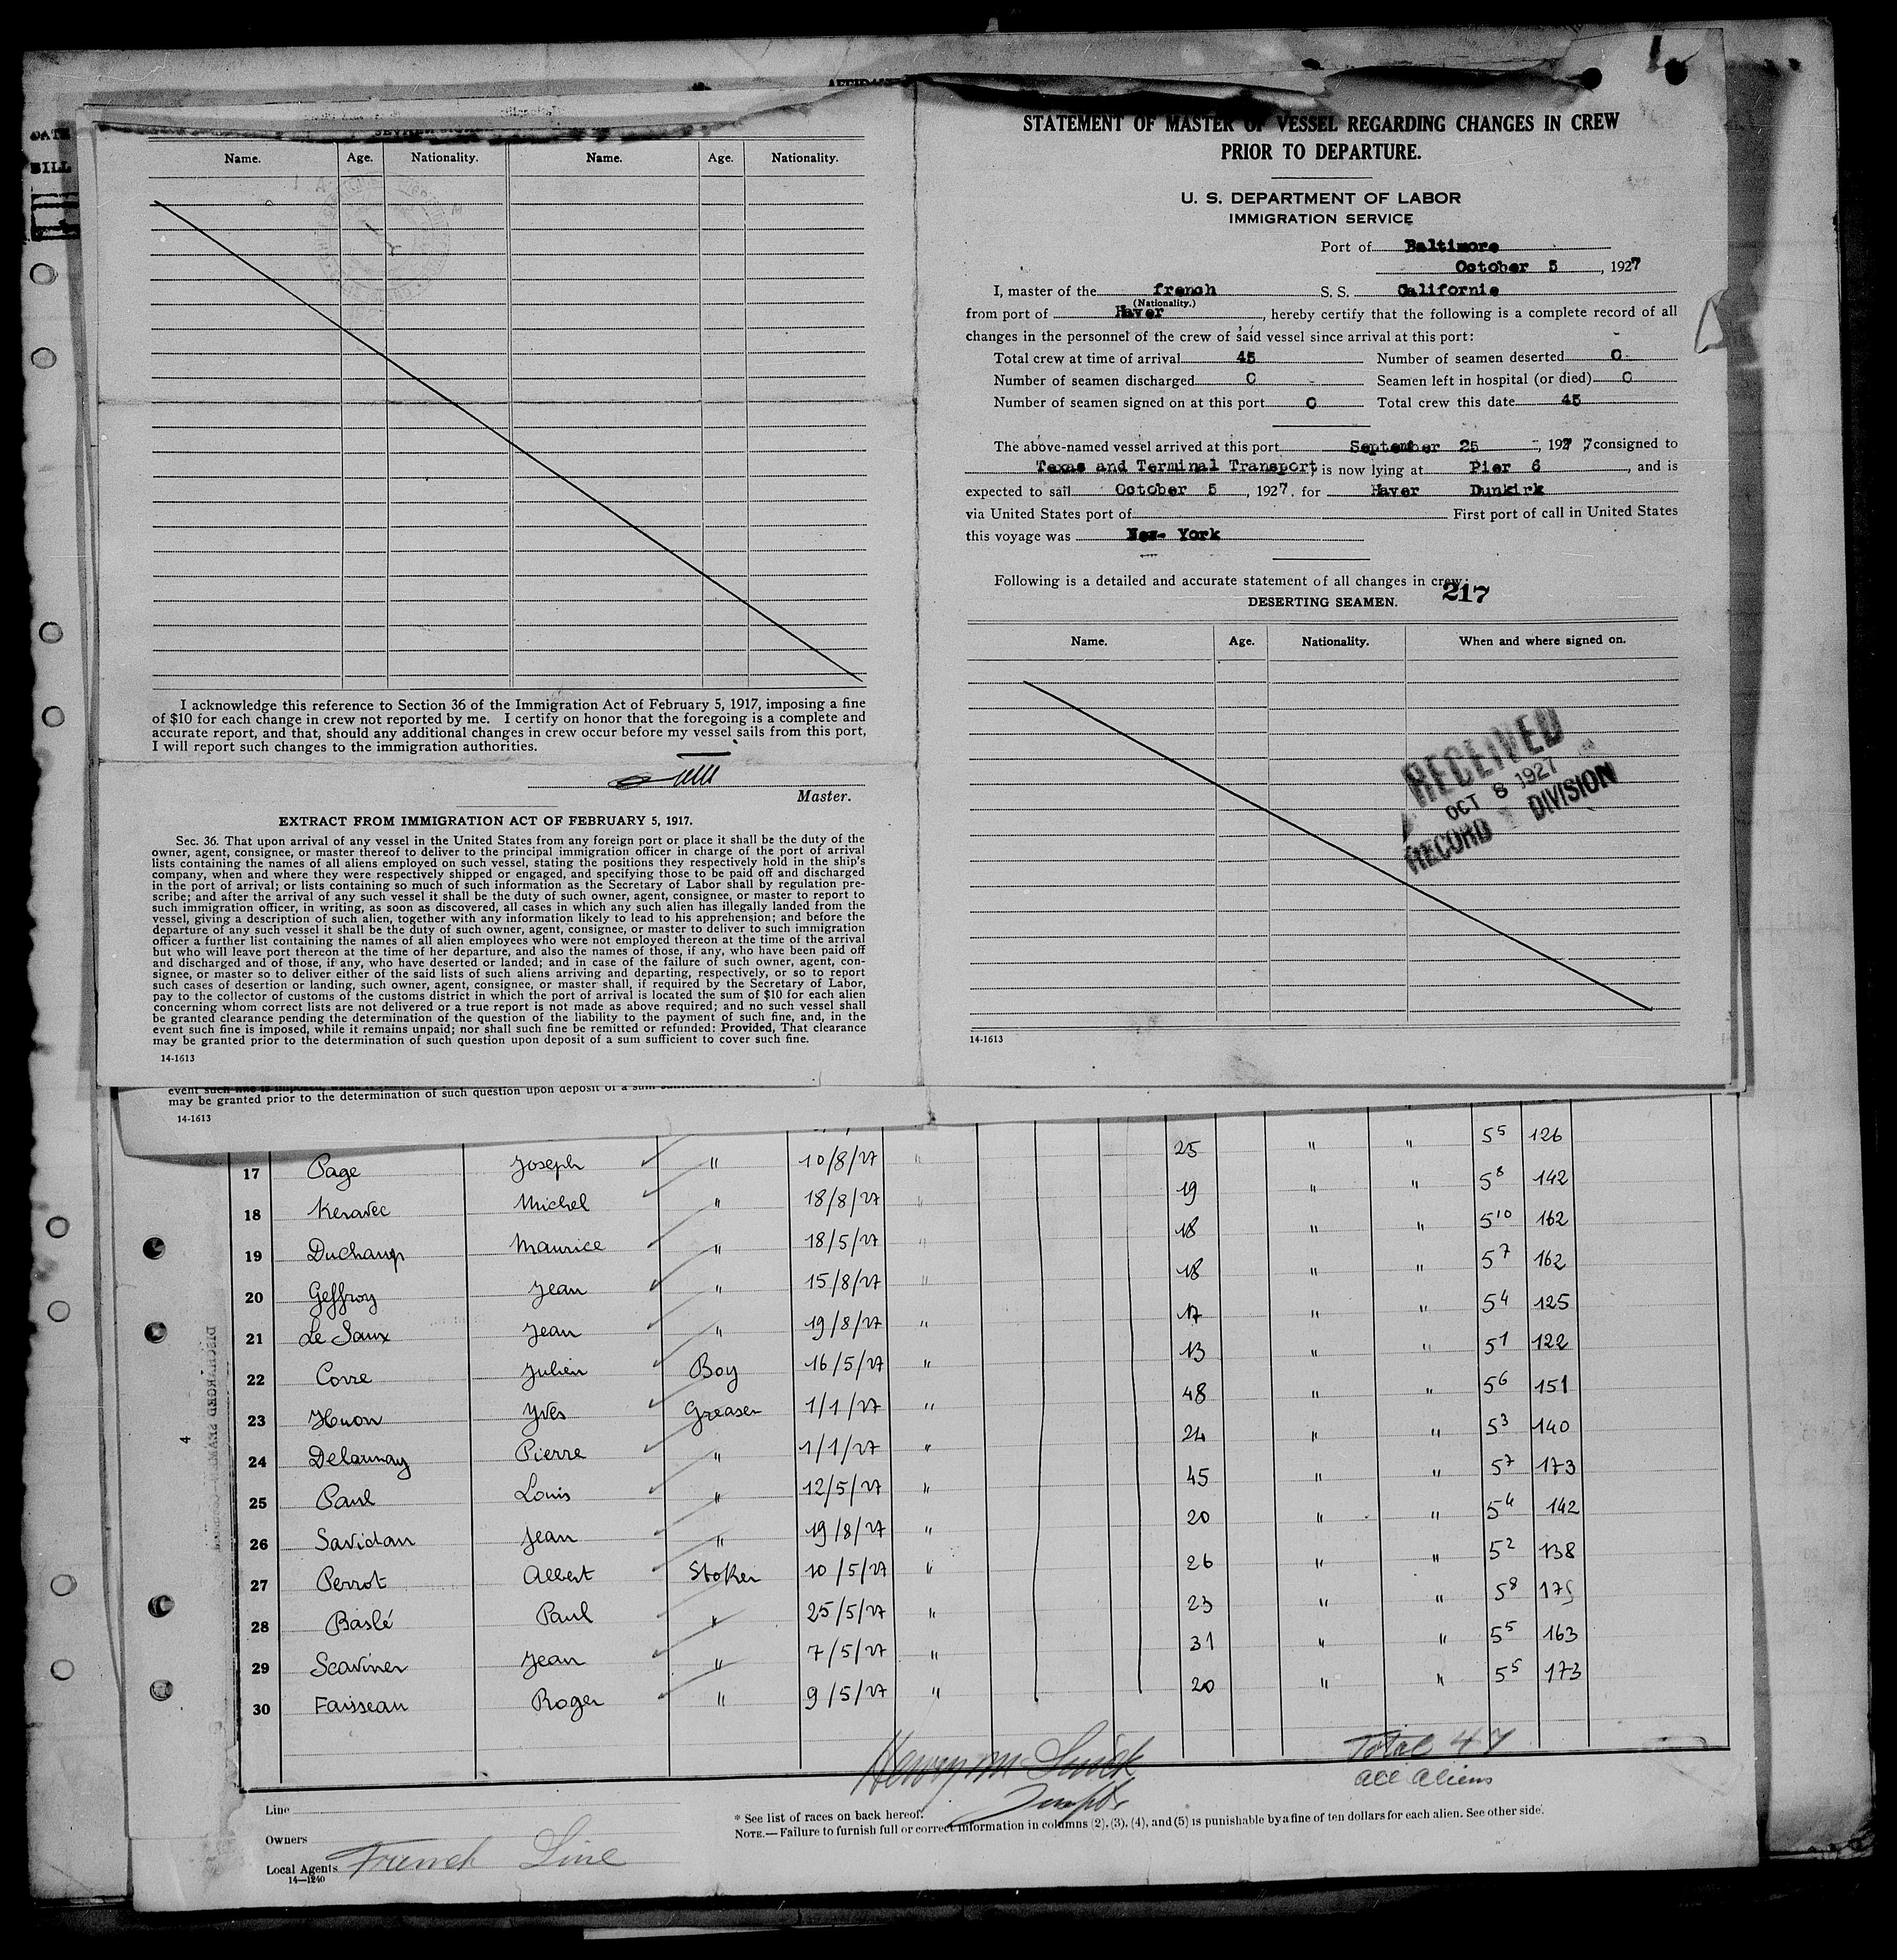 DATE
BILL
Name. Age. Nationality. Name. Age. Nationality.
I acknowledge this reference to Section 36 of the Immigration Act of February 5, 1917, imposing a fine
of $10 for each change in crew not reported by me. I certify on honor that the foregoing is a complete and
accurate report, and that, should any additional changes in crew occur before my vessel sails from this port,
I will report such changes to the immigration authorities.
Master.
EXTRACT FROM IMMIGRATION ACT OF FEBRUARY 5, 1917.
Sec. 36. That upon arrival of any vessel in the United States from any foreign port or place it shall be the duty of the
owner, agent, consignee, or master thereof to deliver to the principal immigration officer in charge of the port of arrival
lists containing the names of all aliens employed on such vessel, stating the positions they respectively hold in the ship's
company, when and where they were respectively shipped or engaged, and specifying those to be paid off and discharged
in the port of arrival; or lists containing so much of such information as the Secretary of Labor shall by regulation pre-
scribe; and after the arrival of any such vessel it shall be the duty of such owner, agent, consignee, or master to report to
such immigration officer, in writing, as soon as discovered, all cases in which any such alien has illegally landed from the
vessel, giving a description of such alien, together with any information likely to lead to his apprehension; and before the
departure of any such vessel it shall be the duty of such owner, agent, consignee, or master to deliver to such immigration
officer a further list containing the names of all alien employees who were not employed thereon at the time of the arrival
but who will leave port thereon at the time of her departure, and also the names of those, if any, who have been paid off
and discharged and of those, if any, who have deserted or landed; and in case of the failure of such owner, agent, con-
signee, or master so to deliver either of the said lists of such aliens arriving and departing, respectively, or so to report
such cases of desertion or landing, such owner, agent, consignee, or master shall, if required by the Secretary of Labor,
pay to the collector of customs of the customs district in which the port of arrival is located the sum of $10 for each alien
concerning whom correct lists are not delivered or a true report is not made as above required; and no such vessel shall
be granted clearance pending the determination of the question of the liability to the payment of such fine, and, in the
event such fine is imposed, while it remains unpaid; nor shall such fine be remitted or refunded: Provided, That clearance
may be granted prior to the determination of such question upon deposit of a sum sufficient to cover such fine.
14-1613
STATEMENT OF MASTER OF VESSEL REGARDING CHANGES IN CREW
PRIOR TO DEPARTURE.
U. S. DEPARTMENT OF LABOR
IMMIGRATION SERVICE
Port of Baltimore
October 5, 1927
I, master of the french S. S. Californie
(Nationality.)
from port of Haver, hereby certify that the following is a complete record of all
changes in the personnel of the crew of said vessel since arrival at this port:
Total crew at time of arrival 45 Number of seamen deserted 0
Number of seamen discharged 0 Seamen left in hospital (or died) 0
Number of seamen signed on at this port 0 Total crew this date 45
The above-named vessel arrived at this port September 25, 1927, consigned to
Texas and Terminal Transport, is now lying at Pier 6, and is
expected to sail October 5, 1927. for Haver Dunkirk
via United States port of First port of call in United States
this voyage was New- York
Following is a detailed and accurate statement of all changes in crew:
217
DESERTING SEAMEN.
Name. Age. Nationality. When and where signed on.
RECEIVED
OCT 8 1927
RECORD DIVISION
14-1613
event such fine is imposed,
may be granted prior to the determination of such question upon deposit of a sum
14-1613
17 Page Joseph " 10/8/27 " 25 " " 5 5 126
18 Keravec Michel " 18/8/27 " 19 " " 5 8 142
19 Duchamp Maurice " 18/5/27 " 18 " " 5 10 162
20 Geffroy Jean " 15/8/27 " 18 " " 5 7 162
21 Le Saux Jean " 19/8/27 " 17 " " 5 4 125
22 Corre Julien Boy 16/5/27 " 13 " " 5 1 122
23 Huon Yves Greaser 1/1/27 " 48 " " 5 6 151
24 Delaunay Pierre " 1/1/27 " 24 " " 5 3 140
25 Paul Louis " 12/5/27 " 45 " " 5 7 173
26 Savidan Jean " 19/8/27 " 20 " " 5 4 142
27 Perrot Albert Stoker 10/5/27 " 26 " " 5 2 138
28 Baslé Paul " 25/5/27 " 23 " " 5 8 175
29 Scaviner Jean " 7/5/27 " 31 " " 5 5 163
30 Faisseau Roger " 9/5/27 " 20 " " 5 5 173
Total 47
all aliens
Line
Owners
Local Agents French Line
14—1240
* See list of races on back hereof.
NOTE.—Failure to furnish full or correct information in columns (2), (3), (4), and (5) is punishable by a fine of ten dollars for each alien. See other side.